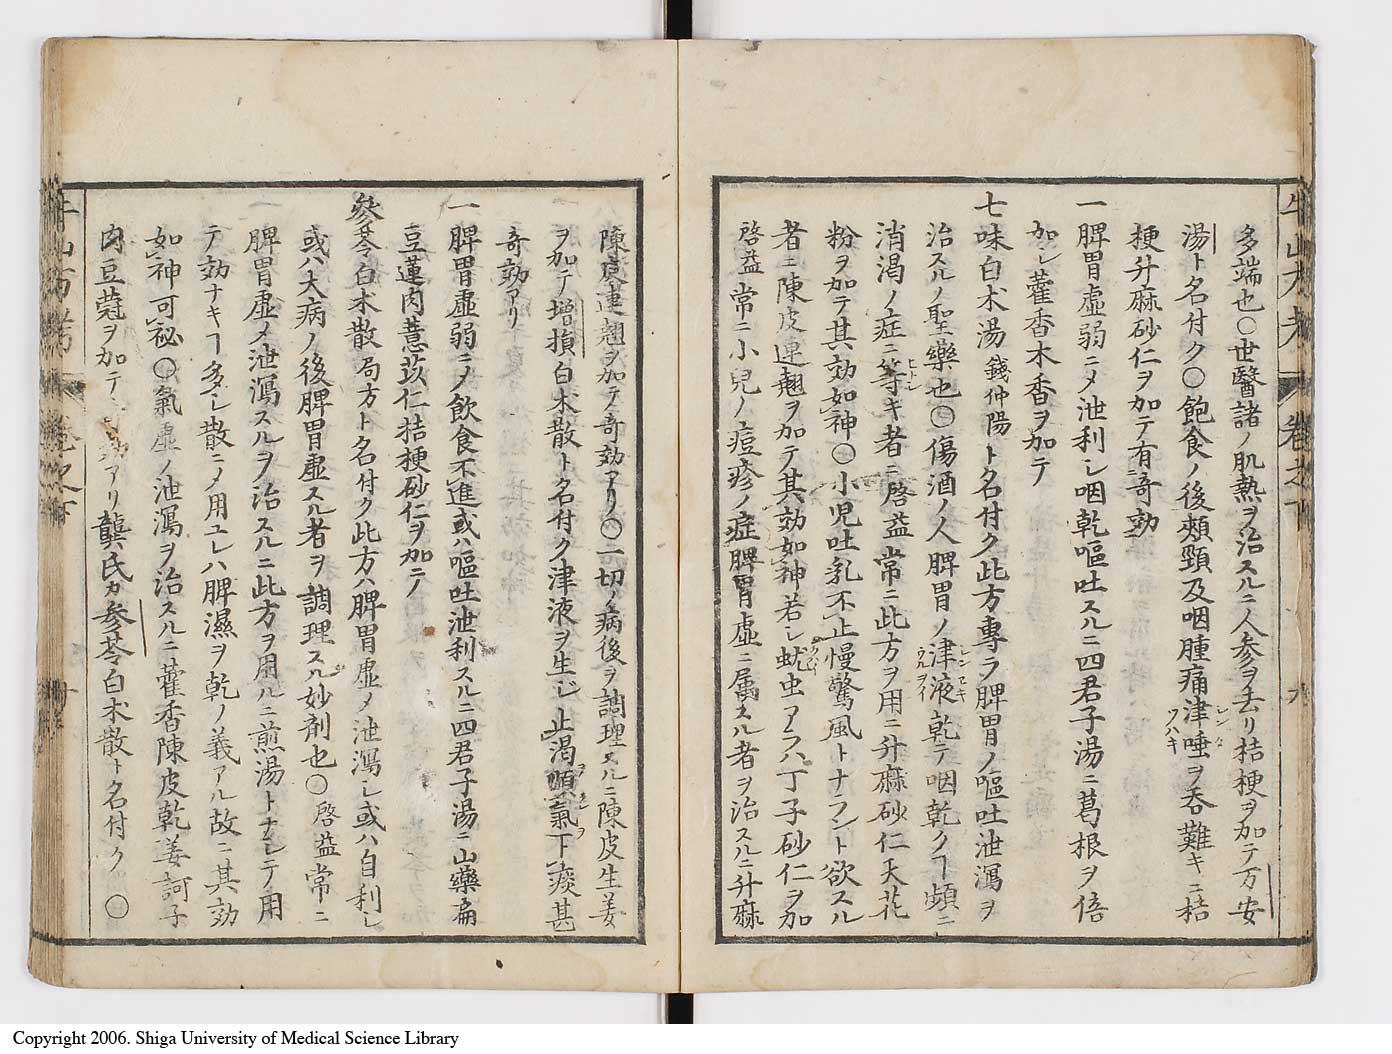 多端也〇世醫諸ノ肌熱ヲ治スルニ人参ヲ去リ桔梗ヲ加テ万安
湯ト名付ク〇飽食ノ後頬頸及咽腫痛津唾ヲ呑難キニ桔
梗升麻砂仁ヲ加テ有奇効
一脾胃虚弱ニメ泄利シ咽乾嘔吐スルニ四君子湯ニ葛根ヲ倍
加シ藿香木香ヲ加テ
七味白朮湯錢仲陽ト名付ク此方専ラ脾胃ノ嘔吐泄瀉ヲ
治スルノ聖藥也〇傷酒ノ人脾胃ノ津液乾テ咽乾クヿ頻ニ
消渇ノ症ニ等キ者ニ啓益常ニ此方ヲ用ニ升麻砂仁天花
粉ヲ加テ其効如神〇小児吐乳不止慢驚風トナラント欲スル
者ニ陳皮連翹ヲ加テ其効如神若シ蚘虫アラハ丁子砂仁ヲ加
啓益常ニ小兒ノ痘疹ノ症脾胃虚ニ属スル者ヲ治スルニ升麻
陳皮連翹ヲ加テ奇効アリ〇一切ノ病後ヲ調理スルニ陳皮生姜
ヲ加テ増損白朮散ト名付ク津液ヲ生シ止渇順氣下痰甚
奇効アリ
一脾胃虚弱ニメ飲食不進或ハ嘔吐泄利スルニ四君子湯ニ山藥扁
豆蓮肉薏苡仁桔梗砂仁ヲ加テ
參苓白朮散局方ト名付ク此方ハ脾胃虚メ泄瀉シ或ハ自利シ
或ハ大病ノ後脾胃虚スル者ヲ調理スル妙剤也〇啓益常ニ
脾胃虚メ泄瀉スルヲ治スルニ此方ヲ用ルニ煎湯トナシテ用
テ効ナキヿ多シ散ニメ用ユレハ脾濕ヲ乾ノ義アル故ニ其効
如神可秘〇氣虚ノ泄瀉ヲ治スルニ藿香陳皮乾姜訶子
肉豆蔲ヲ加テ アリ龔氏カ参苓白朮散ト名付ク〇
牛山方考
卷之下
九
Copyright 2006. Shiga University of Medical Science Library